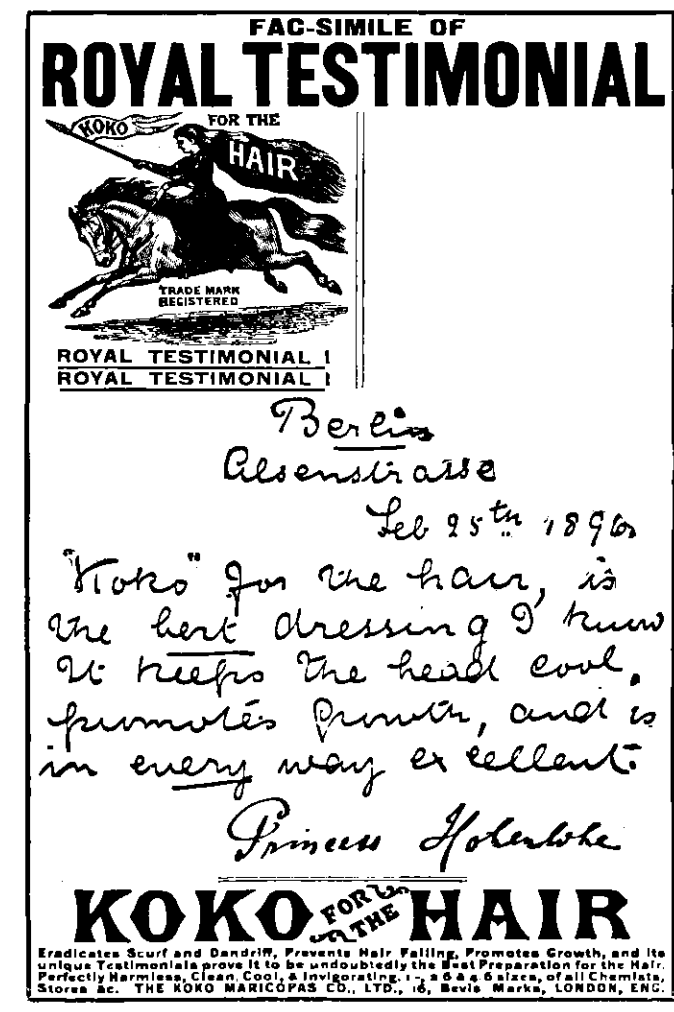 FAC-SIMILE OF
ROYAL TESTIMONIAL
KOKO
FOR THE
HAIR
TRADE MARK
REGISTERED
ROYAL TESTIMONIAL !
ROYAL TESTIMONIAL !
Berlin
Alsenstrasse
Feb 25th 1896
"Koko" for the hair, is
the best dressing I know
It keeps the head cool,
promotes growth, and is
in every way excellent.
Princess Hohenlohe
KOKO FOR THE HAIR
Eradicates Scurf and Dandriff, Prevents Hair Falling, Promotes Growth, and its
unique Testimonials prove it to be undoubtedly the Best Preparation for the Hair.
Perfectly Harmless, Clean, Cool, & Invigorating. 1 -, 2 6 & 4 6 sizes, of all Chemists,
Stores &c. THE KOKO MARICOPAS CO., LTD., 16, Bevis Marks, LONDON, ENG.